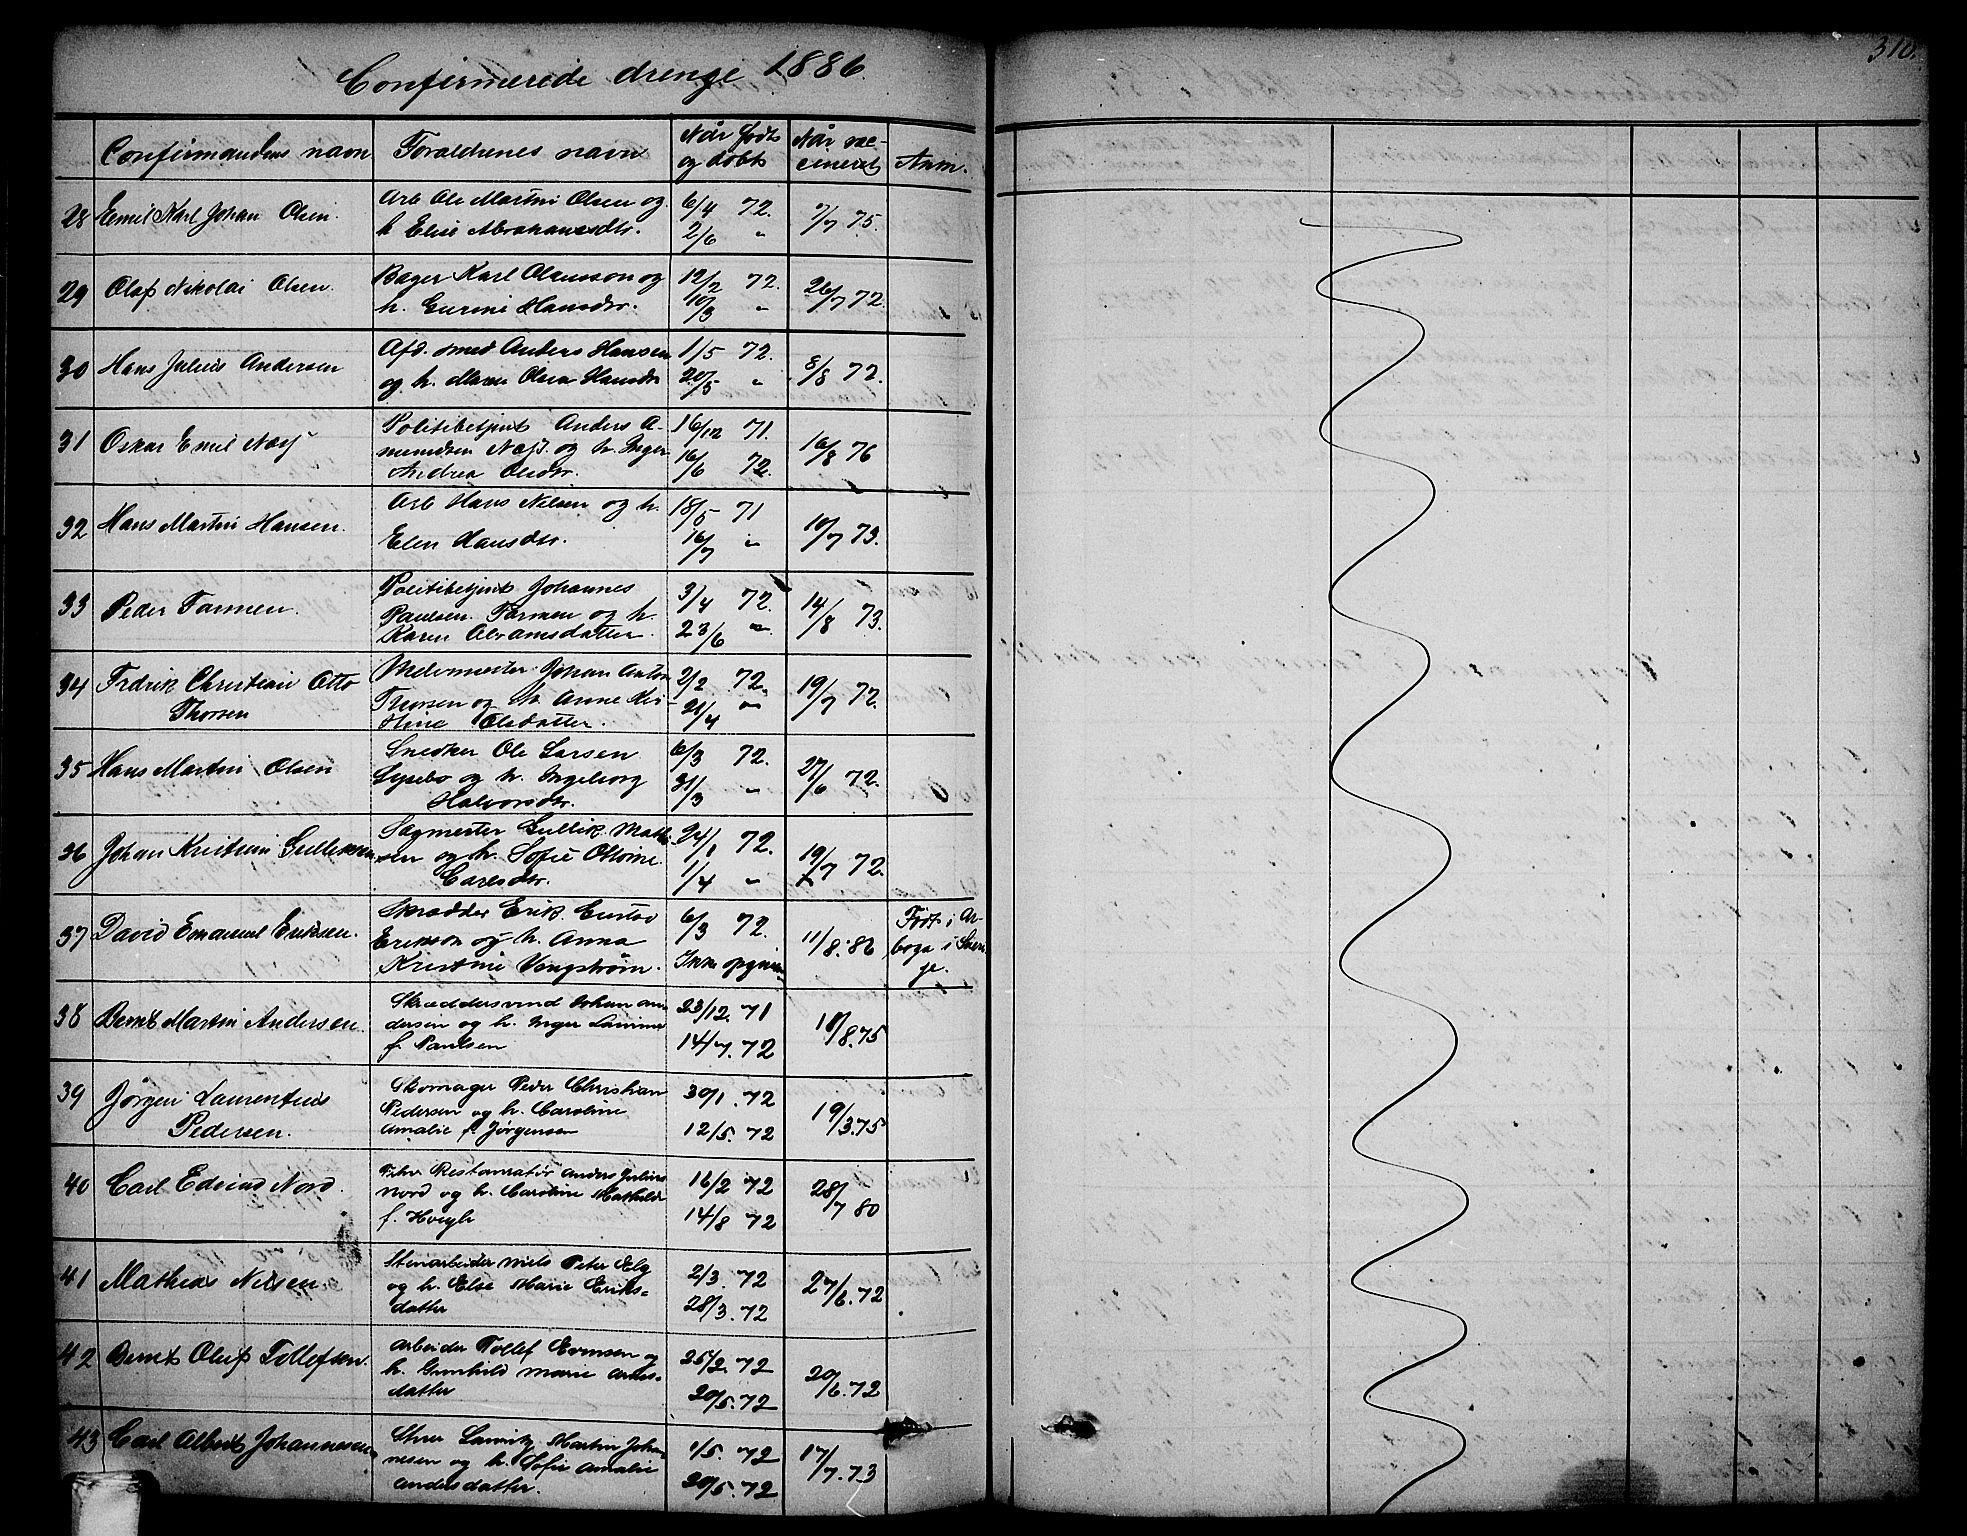 Confirmerede drenge 1886
310.
Confirmandens navn
Forældrenes navn
Når født og døbt
Når vaccineret
Anm.
28 Emil Karl Johan Olsen.
Arb Ole Martin Olsen og
h Elise Abrahamsdtr.
6/4 72.
2/6 "
7/7 75.
29 Olaf Nikolai Olsen.
Bager Karl Olausson og
h. Gurine Hansdtr.
12/2 72.
10/3 "
26/7 72.
30 Hans Julius Andersen
Afd. smed Anders Hansen
og h. Maren Olea Hansdtr
1/5 72.
20/5 "
8/8 72.
31 Oskar Emil Næss
Politibetjent Anders A-
mundsen Næss. og h. Inger
Andrea Olsdtr.
16/12 71.
16/6 72.
16/8 76
32 Hans Martin Hansen.
Arb Hans Nilsen og h.
Elen Hansdtr.
18/5 71
16/7 "
10/7 73.
33 Peder Farmen.
Politibetjent Johannes
Paulsen Farmen og h.
Karen Abramsdatter.
3/4 72.
23/6 "
14/8 73.
34 Fredrik Christian Otto
Thorsen
Johan Anton
Thorsen og h. Anne Kri-
stine Olsdatter.
2/2 72.
21/4 "
19/7 72.
35 Hans Martin Olsen
Snedker Ole Larsen
og h. Ingeborg
Halvorsdtr.
6/3 72.
31/3 "
27/6 72.
36 Johan Kristian Gulliksen
Sagmester Gullik Math-
sen og h. Sofie Ottine
Carlsdtr.
24/1 72.
1/4 "
19/7 72.
37 David Emanuel Eriksen.
Skrædder Erik Gustav
Erikson og h. Anna
Kristine Vengstrøm.
6/3 72.
Ikke opgiven
11/8.86
Født i Ar-
boga i Sveri-
ge.
38 Bernt Martin Andersen.
Skræddersvend Johan An-
dersen og h. Inger Lovine
f. Paulsen
23/12. 71
14/7. 72
18/8.75
39 Jørgen Laurentius
Pedersen.
Skomager Peder Christian
Pedersen og h. Caroline
Amalie f. Jørgensen
30/1. 72
12/5. 72
19/3.75
40 Carl Edvind Nord.
Restauratør Anders Julius
Nord og h. Caroline Mathilde
f. Hvigh
16/2 72
14/8 72
28/7 80
41 Mathias Nilsen.
Stenarbeider Niels Peter Elg
og h. Else Marie Eriks-
datter
2/3. 72
28/3. 72
27/6.72
42 Bernt Oluf Tollefsen.
Arbeider Tollef Evensen og
h. Gunhild Marie Anders-
datter
25/2. 72
20/5. 72
20/6.72
43 Carl Albert Johannessen
Lauritz Martin Joha-
nesen og h. Sofie Amalie
Andersdatter.
1/5. 72
20/5. 72
17/7. 73